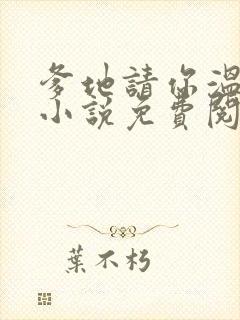 爹地請你溫
小說免費閱
葉不朽